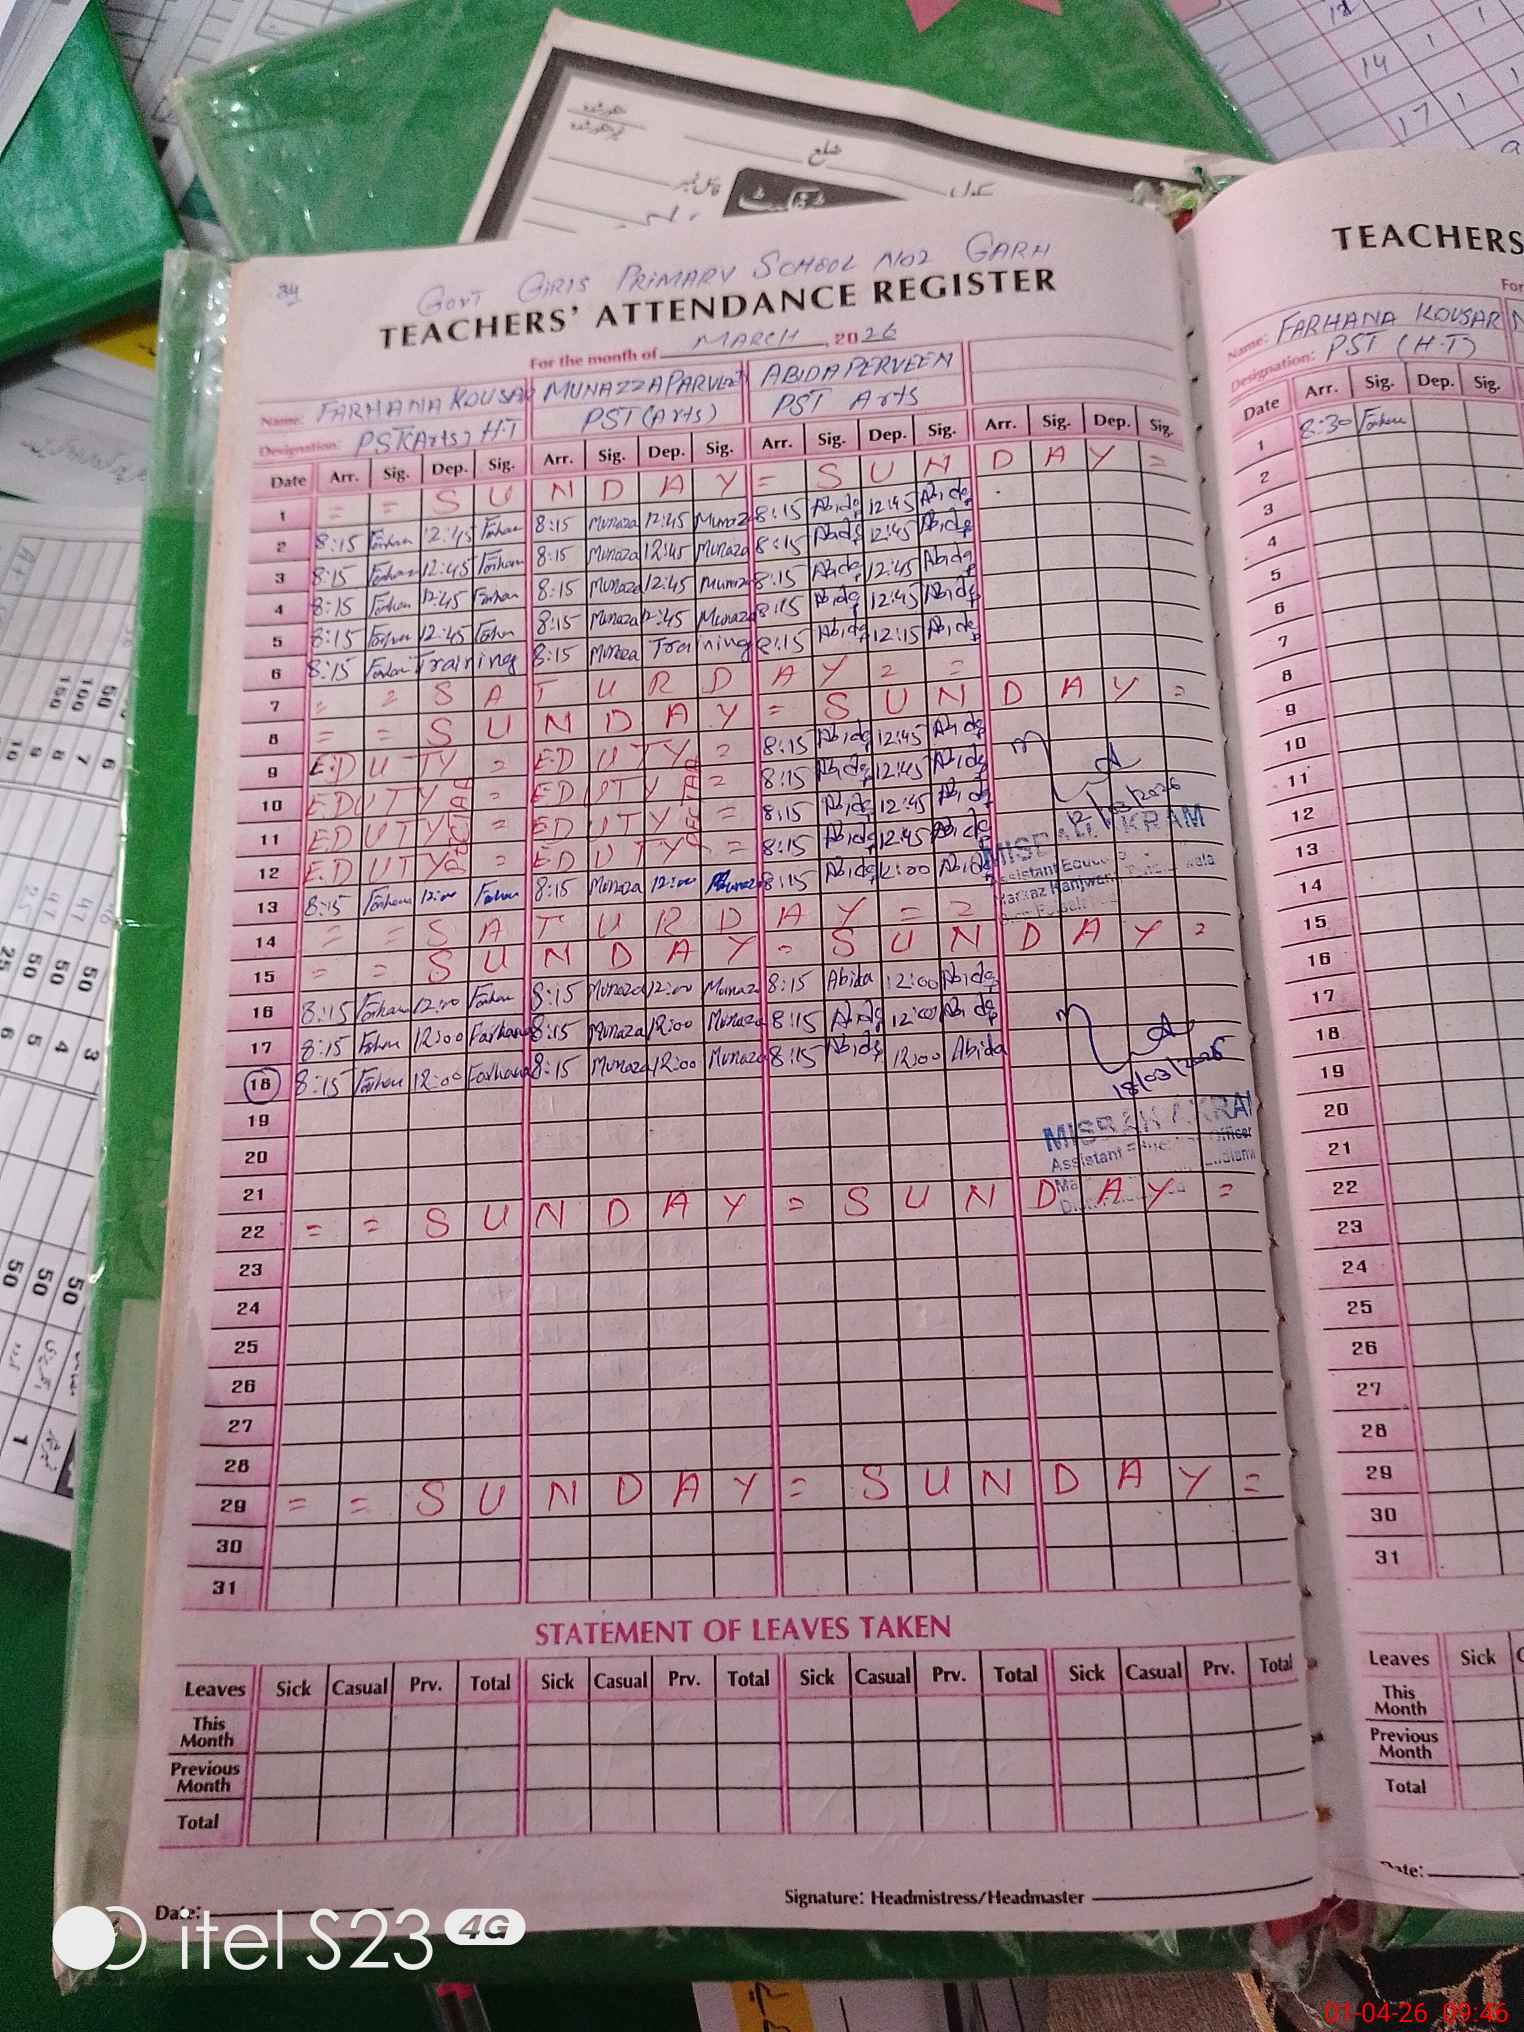 ضلع
34
GOVT GIRLS PRIMARY SCHOOL NO2 GARH
TEACHERS' ATTENDANCE REGISTER
For the month of MARCH, 2026
Name: FARHANA KOUSAR MUNAZZA PARVEEN ABIDA PERVEEN
Designation: PST(Arts) H.T PST (Arts) PST Arts
Date Arr. Sig. Dep. Sig. Arr. Sig. Dep. Sig. Arr. Sig. Dep. Sig. Arr. Sig. Dep. Sig.
1 = = S U N D A Y = S U N D A Y =
2 8:15 Farhan 12:45 Farhan 8:15 Munaza 12:45 Munaza 8:15 Abida 12:45 Abida
3 8:15 Farhan 12:45 Farhan 8:15 Munaza 12:45 Munaza 8:15 Abida 12:45 Abida
4 8:15 Farhan 12:45 Farhan 8:15 Munaza 12:45 Munaza 8:15 Abida 12:45 Abida
5 8:15 Farhan 12:45 Farhan 8:15 Munaza 12:45 Munaza 8:15 Abida 12:45 Abida
6 8:15 Farhan Training 8:15 Munaza Training 8:15 Abida 12:15 Abida
7 = = S A T U R D A Y = =
8 = = S U N D A Y = S U N D A Y =
9 E.D U T Y = E.D U T Y = 8:15 Abida 12:45 Abida
10 E.D U T Y = E.D U T Y = 8:15 Abida 12:45 Abida
11 E.D U T Y = E.D U T Y = 8:15 Abida 12:45 Abida
12 E.D U T Y = E.D U T Y = 8:15 Abida 12:45 Abida
12/03/2026
13 8:15 Farhana 12:00 Farhan 8:15 Munaza 12:00 Munaza 8:15 Abida 12:00 Abida
14 = = S A T U R D A Y = =
15 = = S U N D A Y = S U N D A Y =
16 8:15 Farhana 12:00 Farhan 8:15 Munaza 12:00 Munaza 8:15 Abida 12:00 Abida
17 8:15 Farhan 12:00 Farhana 8:15 Munaza 12:00 Munaza 8:15 Abida 12:00 Abida
18 8:15 Farhan 12:00 Farhana 8:15 Munaza 12:00 Munaza 8:15 Abida 12:00 Abida
18/03/2026
19
20
Assistant
21
22 = = S U N D A Y = S U N D A Y =
23
24
25
26
27
28
29 = = S U N D A Y = S U N D A Y =
30
31
STATEMENT OF LEAVES TAKEN
Leaves Sick Casual Prv. Total Sick Casual Prv. Total Sick Casual Prv. Total Sick Casual Prv. Total
This Month
Previous Month
Total
Date:
Signature: Headmistress/Headmaster
TEACHERS
For
Name: FARHANA KOUSAR
Designation: PST (H.T)
Date Arr. Sig. Dep. Sig.
1 8:30 Farhan
2
3
4
5
6
7
8
9
10
11
12
13
14
15
16
17
18
19
20
21
22
23
24
25
26
27
28
29
30
31
Leaves Sick
This Month
Previous Month
Total
Date:
itel S23 4G
01-04-26 09:46